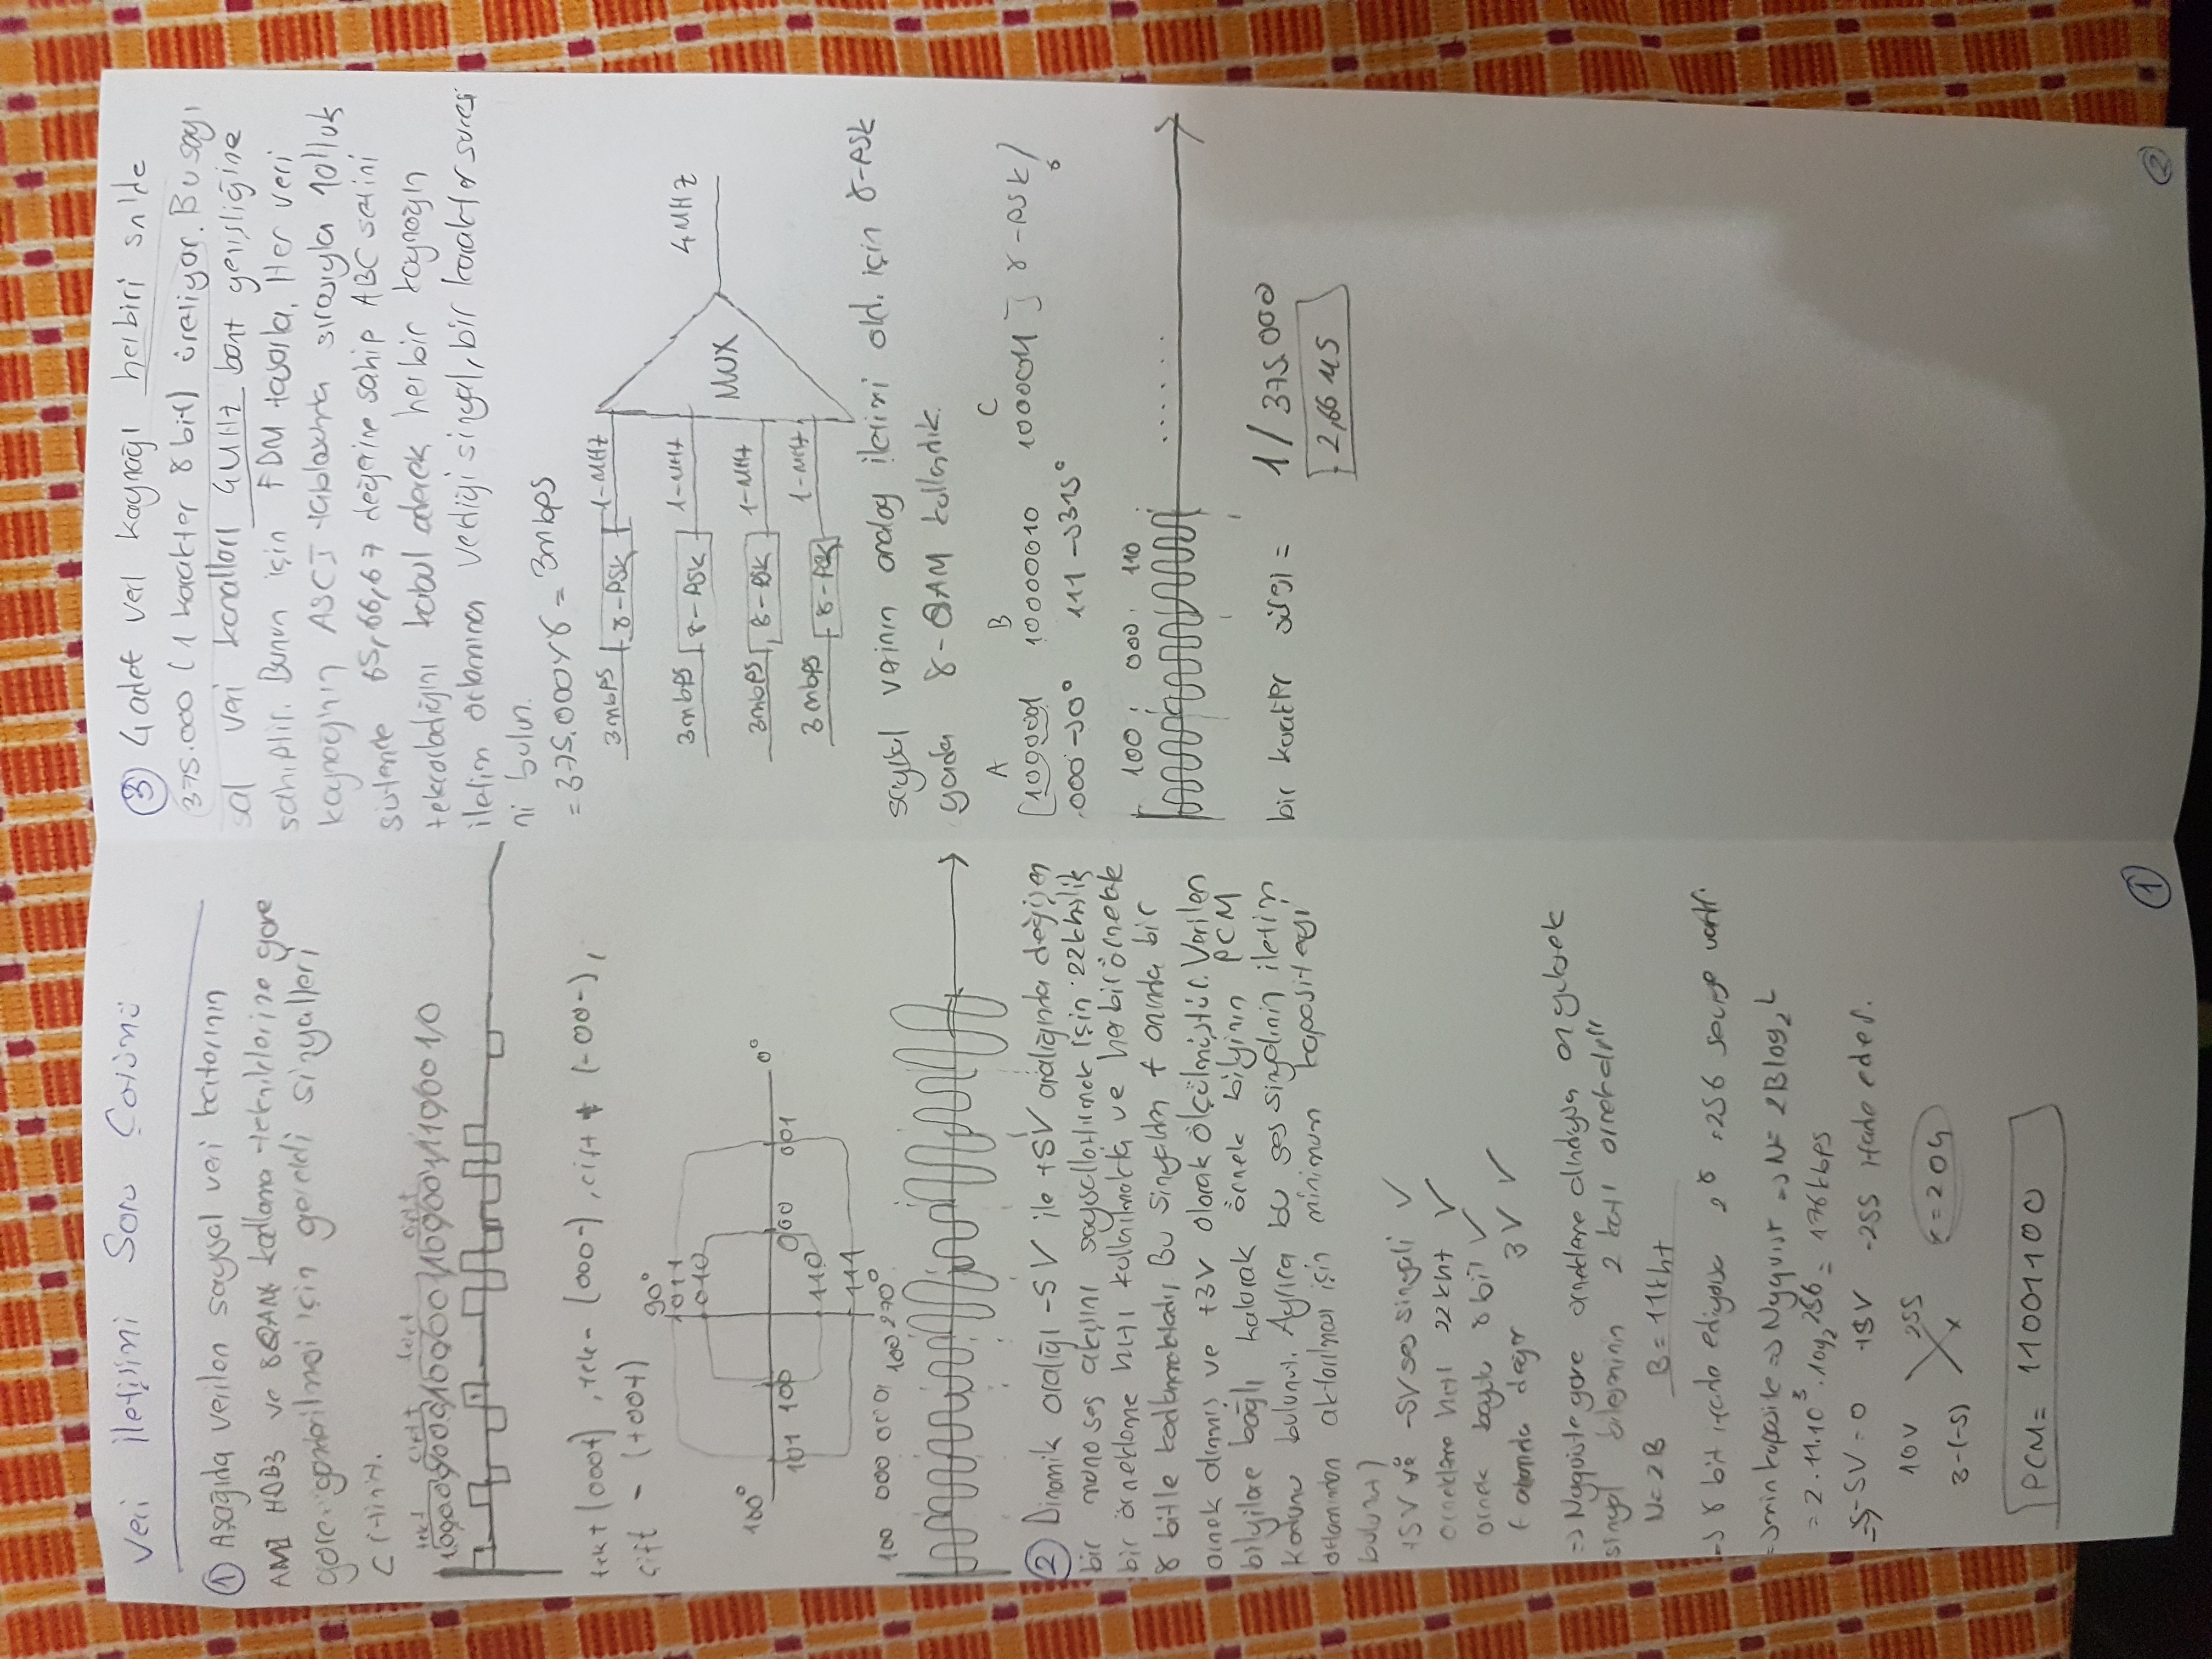 Veri iletişimi Soru Çözümü
① Aşağıda verilen sayısal veri
AMI HDB3 ve 8QAM kodlama tekniklerine göre
göre gönderilmesi için gerekli sinyalleri
çiziniz.
tek+ çift+ tek+ çift+
tek+ (000+), tek- (000-), çift + (-00-),
çift - (+00+)
90°
1011
010
180°
0°
101 100 000 001
110
111
270°
100 000 001 100
② Dinamik aralığı -5V ile +5V aralığında değişen
bir mono ses akışını sayısallaştırmak için 22khzlik
bir örnekleme hızı kullanılmakta ve herbir örnekte
8 bitle kodlanmaktadır, Bu sinyalden t anında bir
örnek alınmış ve +3V olarak ölçülmüştür. Verilen
bilgilere bağlı kalarak örnek bilginin PCM
kodunu bulunuz. Ayrıca bu ses sinyalinin iletim
ortamından aktarılması için minimum kapasiteyi
bulunuz)
+5V ve -5V ses sinyali ✓
örnekleme hızı 22khz ✓
örnek boyutu 8 bit ✓
t anında değer 3V ✓
=> Nyquiste göre örnekleme alındıysa en yüksek
sinyal bileşninin 2 katı örnekalır
N=2B B=11khz
-> 8 bit ifade ediyorsa 2⁸ =256 seviye vardır.
=> min kapasite => Nyquist => N= 2Blog₂L
= 2.11.10³.log₂256 = 176kbps
=> -5V=0 +5V -255 ifade eder.
10V 255
3-(-5) x x=204
PCM= 11001100
①
③ 4 adet veri kaynağı herbiri sn'de
375.000 (1 karakter 8 bit) üretiyor. Bu sayı
sal veri kanalları 4MHz bant genişliğine
sahiptir. Bunun için FDM tasarla. Her veri
kaynağının ASCI tablosunda sırasıyla 10'luk
sistemde 65,66,67 değerine sahip ABC setini
tekrarladığını kabul ederek herbir kaynağın
iletim ortamına verdiği sinyal, bir karakter süresi
ni bulun.
= 375.000x8 = 3mbps
3mbps 8-PSK 1-MHz
3mbps 8-PSK 1-MHz
3mbps 8-PSK 1-MHz
3mbps 8-PSK 1-MHz
MUX
4MHZ
sayısal verinin analog iletimi old. için 8-PSK
yada 8-QAM kullandık.
A B C
[1000001 10000010 1000011] 8-PSK
000 -> 0° 111 -> 315°
100 000 110 ......
bir karakter süresi = 1/375.000
2,66 µs
②